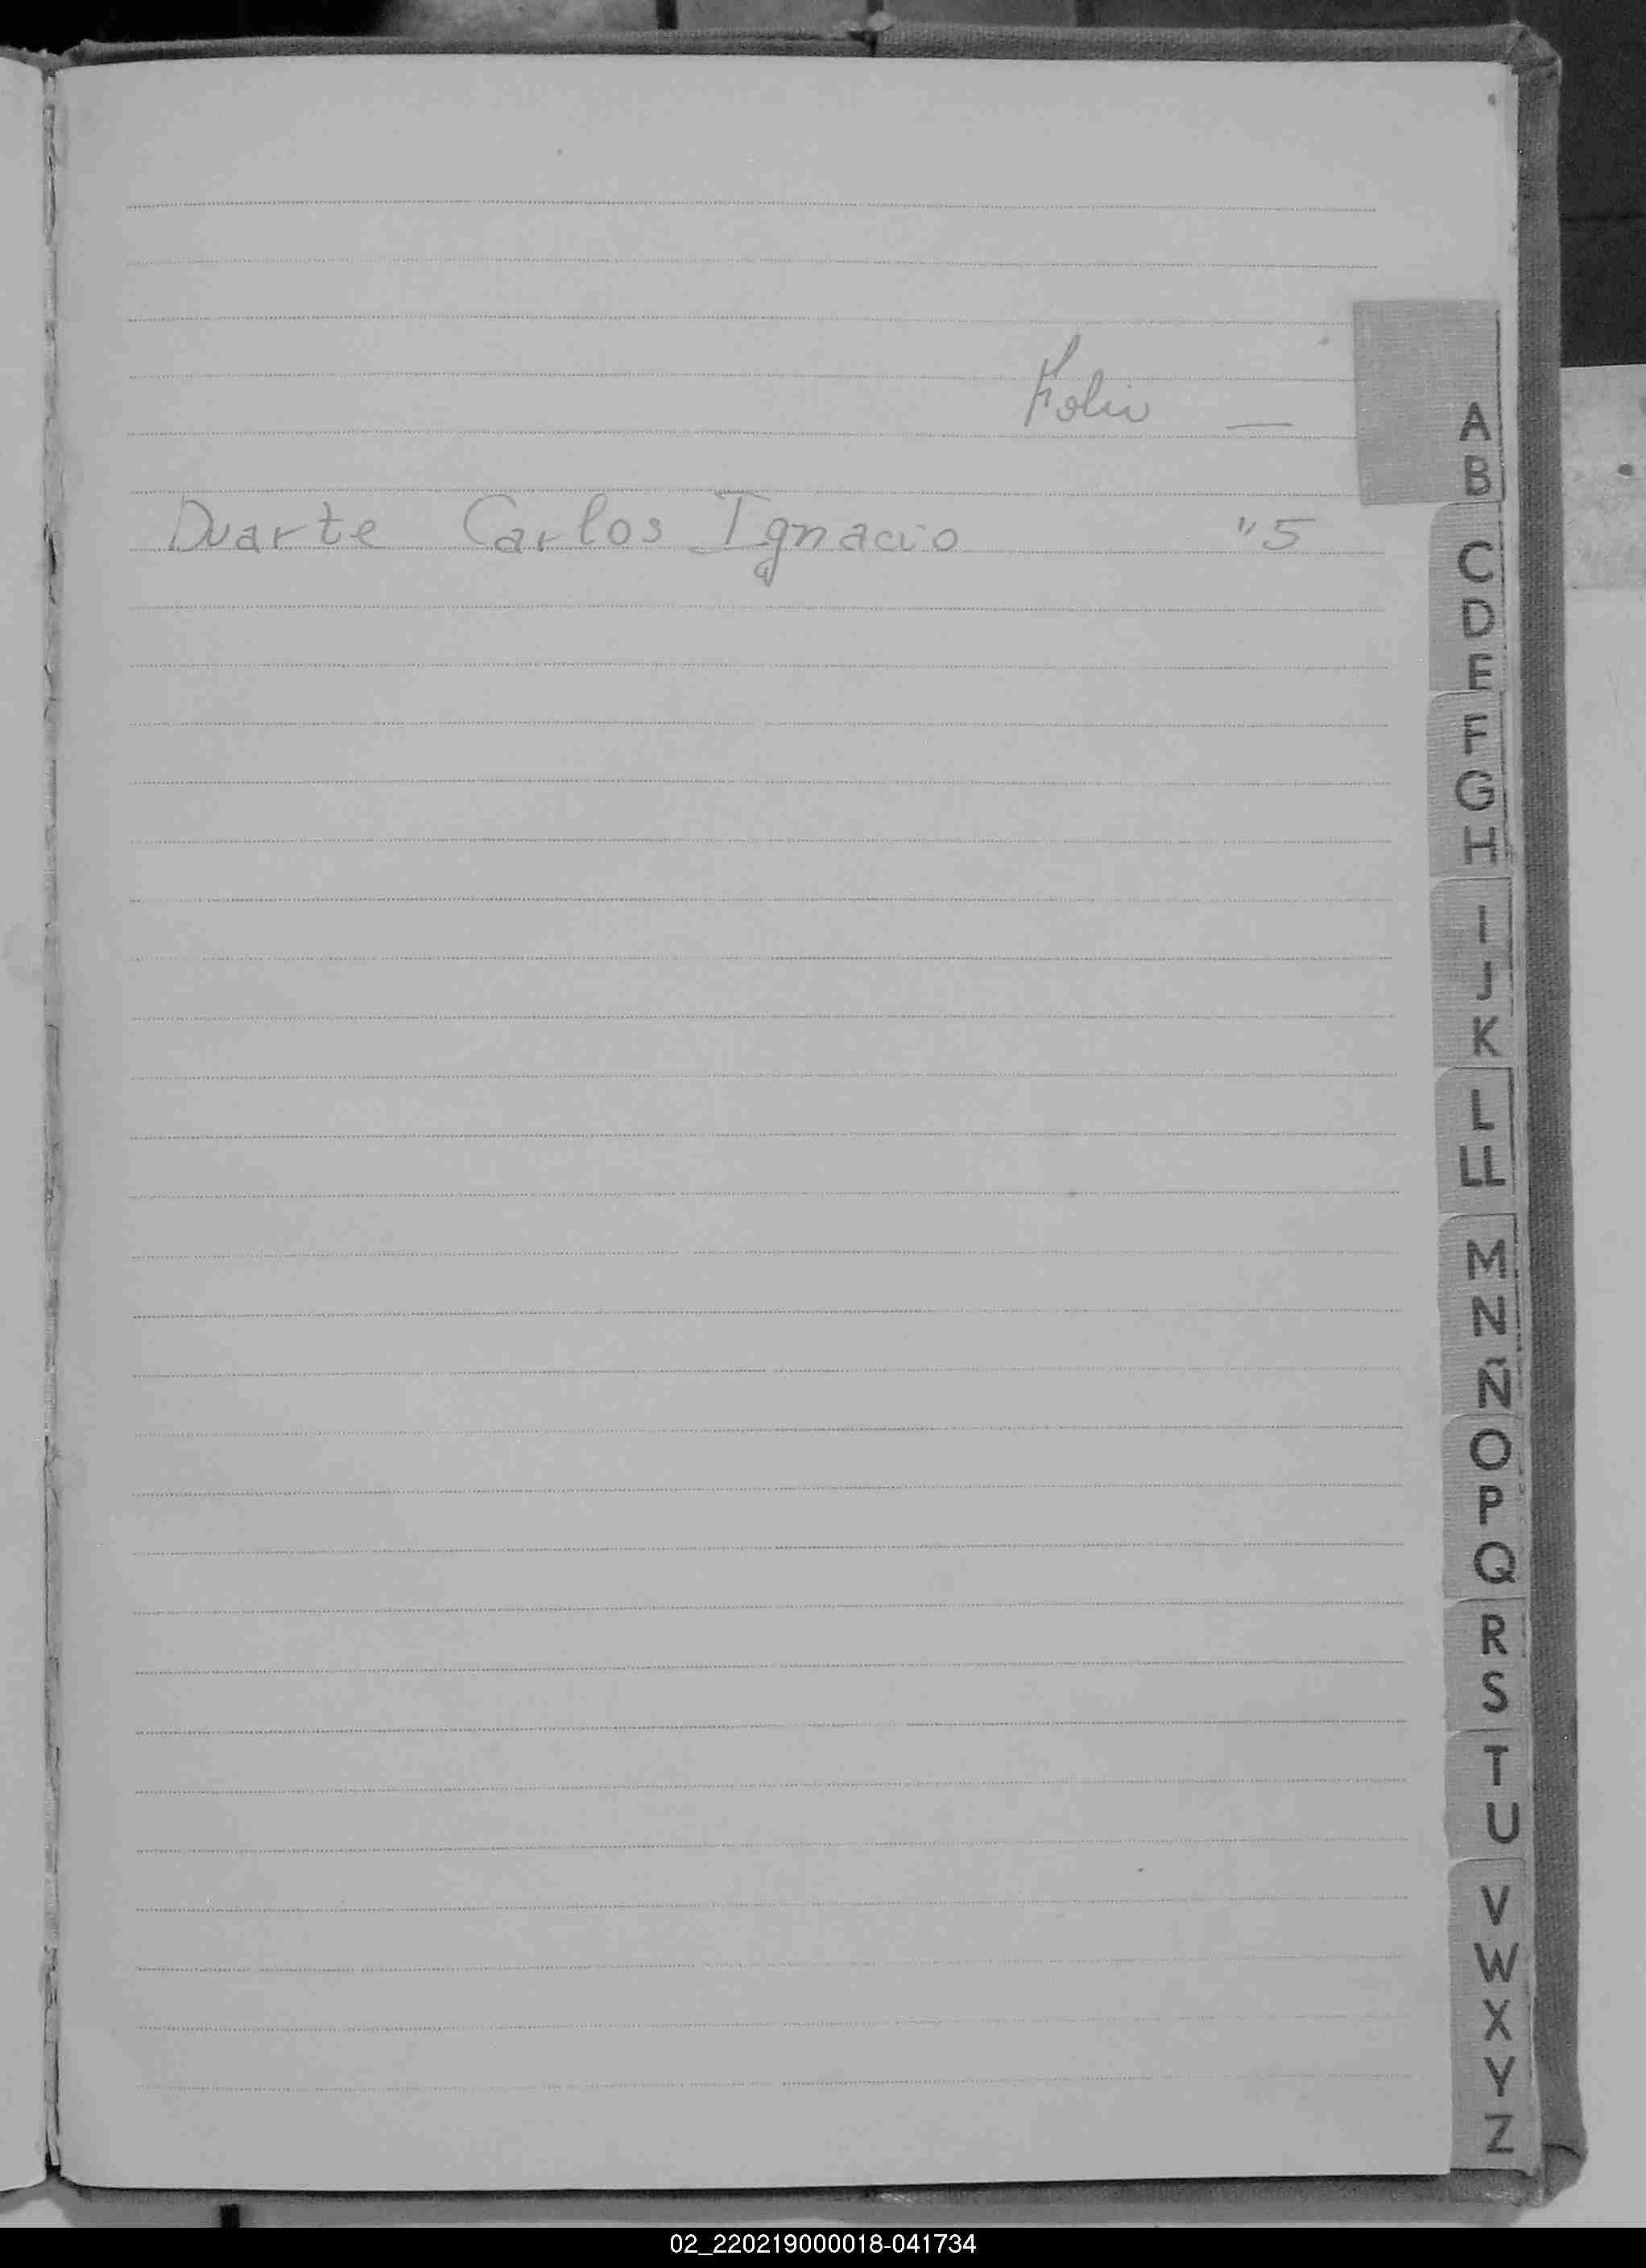 Folio —
Duarte Carlos Ignacio " 5
A
B
C
D
E
F
G
H
I
J
K
L
LL
M
N
Ñ
O
P
Q
R
S
T
U
V
W
X
Y
Z
02_220219000018-041734